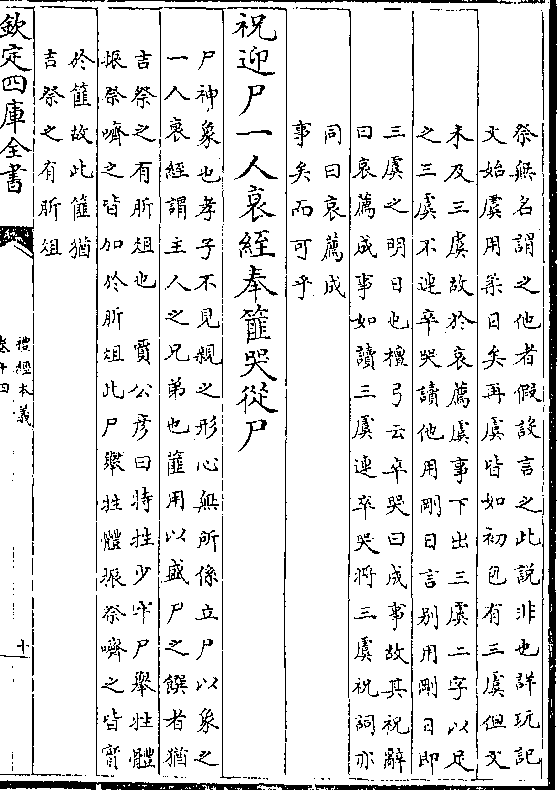 祭無名謂之他者假設言之此說非也詳玩記
文始虞用柔日矣再虞皆如初包有三虞但文
未及三虞故於哀薦虞事下出三虞二字以足
之三虞不連卒哭讀他用剛日言别用剛日即
三虞之明日也檀弓云卒哭曰成事故其祝辭
曰哀薦成事如讀三虞連卒哭將三虞祝詞亦
同曰哀薦成
事矣而可乎
祝迎尸一人衰絰奉篚哭從尸
尸神象也孝子不見親之形心無所係立尸以象之
一人衰絰謂主人之兄弟也篚用以盛尸之饌者猶
吉祭之有肵俎也 賈公彦曰特牲少牢尸舉牲體
振祭嚌之皆加於肵俎此尸舉牲體振祭嚌之皆實
於篚故此篚猶
吉祭之有肵俎
欽定四庫全書
禮經本義
卷十四
十